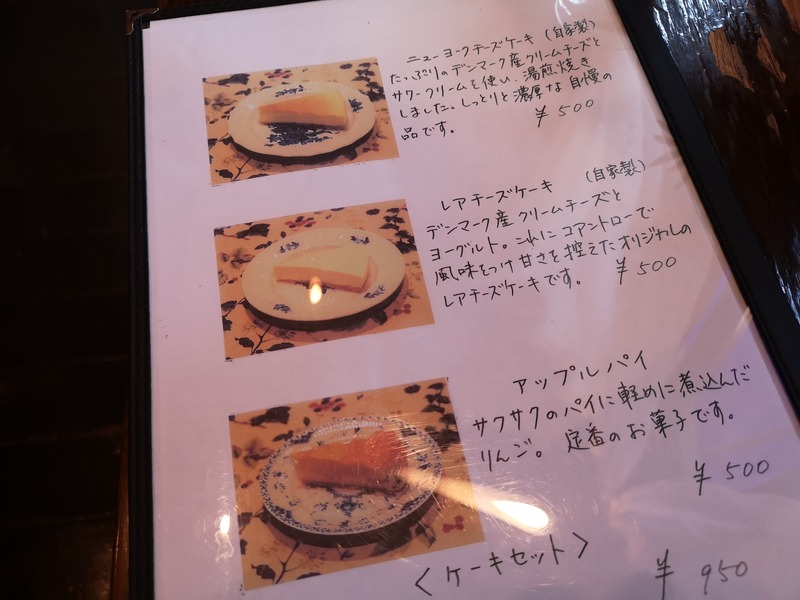 ニューヨークチーズケーキ (自家製)
たっぷりのデンマーク産クリームチーズと
サワークリームを使い、湯煎焼き
しました。しっとりと濃厚な自慢の
品です。 ¥500
レアチーズケーキ (自家製)
デンマーク産クリームチーズと
ヨーグルト。これにコアントローで
風味をつけ甘さを控えたオリジナルの
レアチーズケーキです。 ¥500
アップルパイ
サクサクのパイに軽めに煮込んだ
りんご。定番のお菓子です。
¥500
<ケーキセット> ¥950